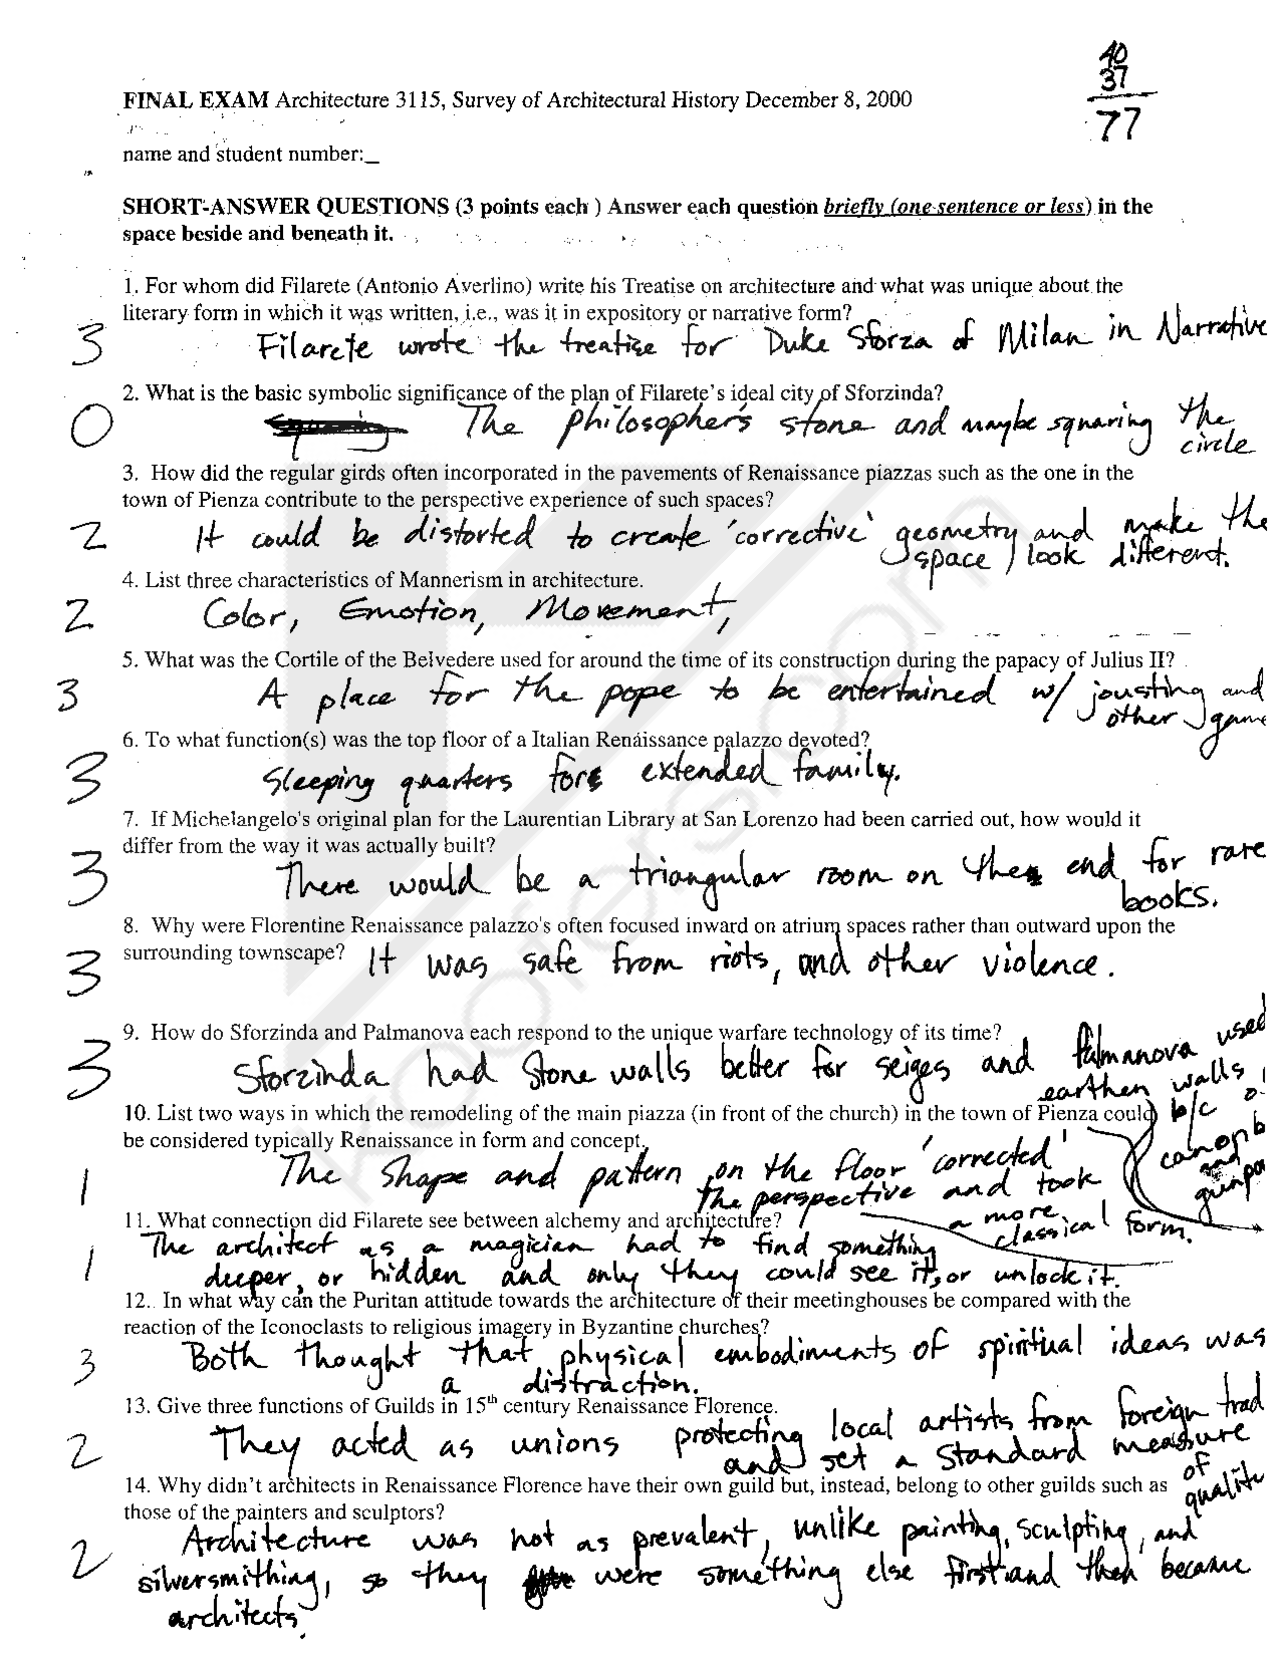 40
37
77
FINAL EXAM Architecture 3115, Survey of Architectural History December 8, 2000
name and student number:_
SHORT-ANSWER QUESTIONS (3 points each ) Answer each question briefly (one sentence or less) in the
space beside and beneath it.
1. For whom did Filarete (Antonio Averlino) write his Treatise on architecture and what was unique about the
literary form in which it was written, i.e., was it in expository or narrative form?
3 Filarete wrote the treatise for Duke Sforza of Milan in Narrative
2. What is the basic symbolic significance of the plan of Filarete's ideal city of Sforzinda?
0 The philosopher's stone and maybe squaring the
circle
3. How did the regular girds often incorporated in the pavements of Renaissance piazzas such as the one in the
town of Pienza contribute to the perspective experience of such spaces?
2 It could be distorted to create 'corrective' geometry and make the
space look different.
4. List three characteristics of Mannerism in architecture.
2 Color, Emotion, Movement,
5. What was the Cortile of the Belvedere used for around the time of its construction during the papacy of Julius II?
3 A place for the pope to be entertained w/ jousting and
other game
6. To what function(s) was the top floor of a Italian Renaissance palazzo devoted?
3 Sleeping quarters for extended family.
7. If Michelangelo's original plan for the Laurentian Library at San Lorenzo had been carried out, how would it
differ from the way it was actually built?
3 There would be a triangular room on the end for rare
books.
8. Why were Florentine Renaissance palazzo's often focused inward on atrium spaces rather than outward upon the
surrounding townscape? It was safe from riots, and other violence.
3
9. How do Sforzinda and Palmanova each respond to the unique warfare technology of its time?
3 Sforzinda had stone walls better for seiges and Palmanova used
earthen walls
b/c
10. List two ways in which the remodeling of the main piazza (in front of the church) in the town of Pienza could
be considered typically Renaissance in form and concept.
1 The shape and pattern on the floor 'corrected'
the perspective and took
a more classical form.
11. What connection did Filarete see between alchemy and architecture?
1 The architect as a magician had to find something
deeper, or hidden and only they could see it, or unlock it.
12. In what way can the Puritan attitude towards the architecture of their meetinghouses be compared with the
reaction of the Iconoclasts to religious imagery in Byzantine churches?
3 Both thought that physical embodiments of spiritual ideas was
a distraction.
13. Give three functions of Guilds in 15th century Renaissance Florence.
2 They acted as unions protecting local artists from foreign trad
and set a standard measure
of
quality
14. Why didn't architects in Renaissance Florence have their own guild but, instead, belong to other guilds such as
those of the painters and sculptors?
2 Architecture was not as prevalent, unlike painting, sculpting, and
silversmithing, so they were something else first and then became
architects.
koofers.com